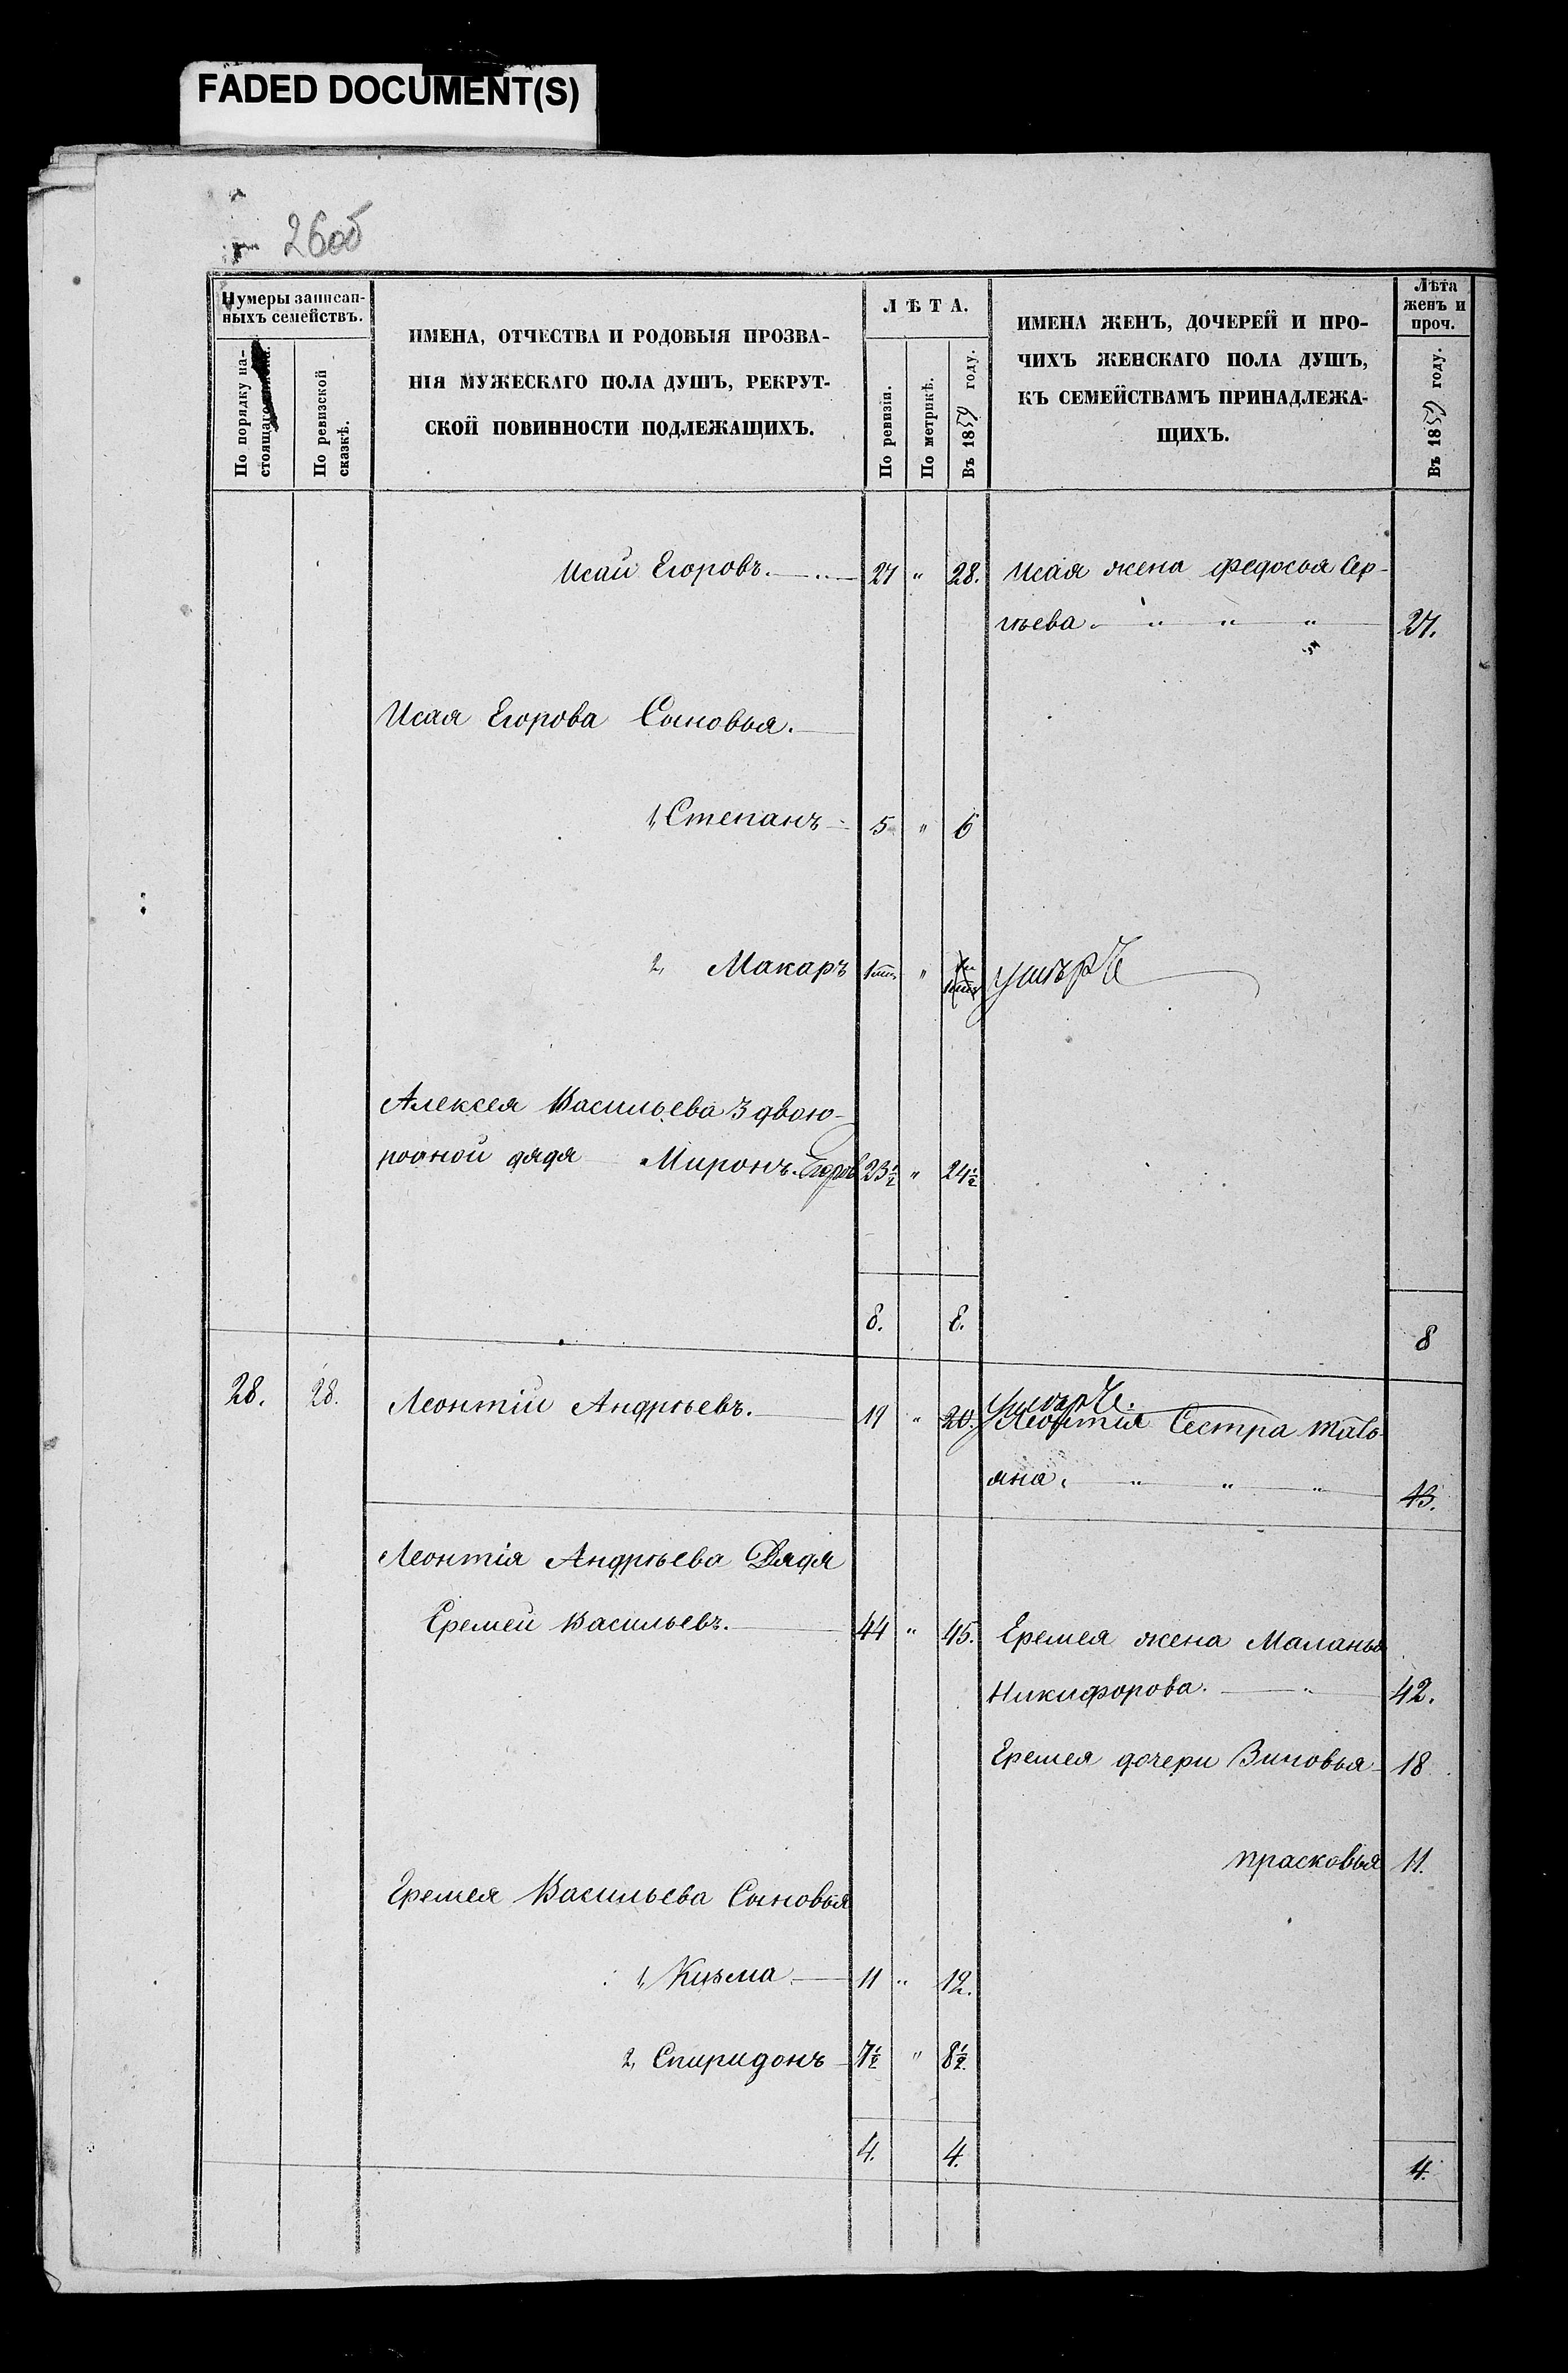 FADED DOCUMENT(S)
26об
Нумеры записан-
ныхъ семействъ.
По порядку на-
стоящаго
По ревизской
сказкѣ.
ИМЕНА, ОТЧЕСТВА И РОДОВЫЯ ПРОЗВА-
НІЯ МУЖЕСКАГО ПОЛА ДУШЪ, РЕКРУТ-
СКОЙ ПОВИННОСТИ ПОДЛЕЖАЩИХЪ.
ЛѢТА.
По ревизіи.
По метрикѣ.
Въ 1859 году.
ИМЕНА ЖЕНЪ, ДОЧЕРЕЙ И ПРО-
ЧИХЪ ЖЕНСКАГО ПОЛА ДУШЪ,
КЪ СЕМЕЙСТВАМЪ ПРИНАДЛЕЖА-
ЩИХЪ.
Лѣта
женъ и
проч.
Въ 1859 году.
Исай Егоровъ. 27 " 28. Исая жена Федосья Сер-
гѣева 27.
Исая Егорова Сыновья.
1, Степанъ 5 " 6
2, Макаръ 1 " умеръ
Алексея Васильева 3 двою-
родной дядя Миронъ Егоров 23½ " 24½
8. 8. 8
28. 28. Леонтій Андрѣевъ. 19 " 20. умеръ.
Леонтія Сестра Тать-
яна 13.
Леонтія Андрѣева Дядя
Еремей Васильевъ. 44 " 45. Еремея жена Маланья
Никифорова. 42.
Еремея дочери Зиновья 18
Прасковья 11.
Еремея Васильева Сыновья
1, Кизма 11 " 12.
2, Спиридонъ 7½ " 8½
4. 4. 4.